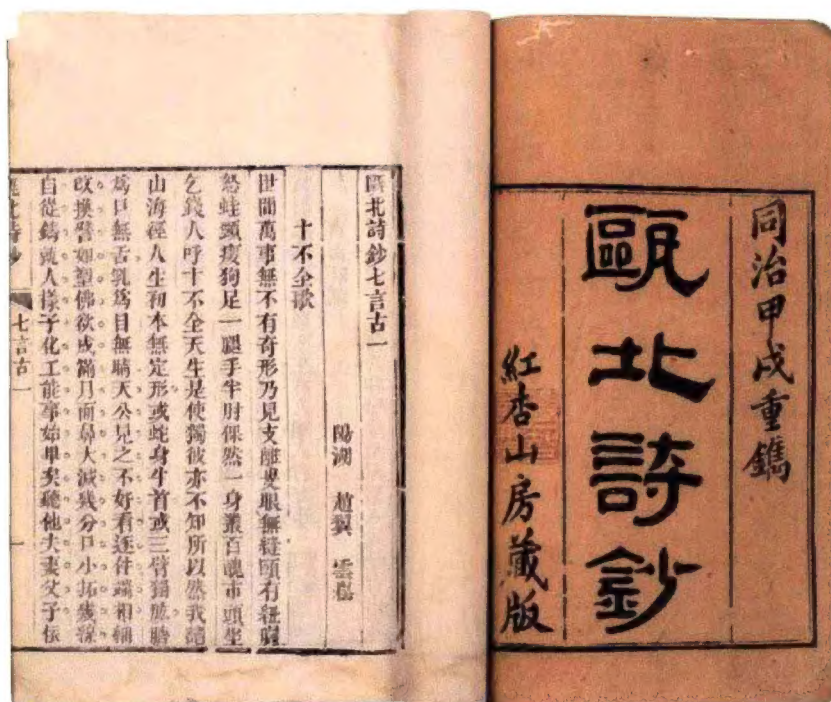 同治甲戌重鐫
甌北詩鈔
紅杏山房藏版
甌北詩鈔七言古一
陽湖 趙翼 雲崧
十不全歌
世間萬事無不有奇形乃見支離叟眼無縫頤有紐
怒蛙頸瘦狗足一腿手半肘倮然一身叢百醜市頭坐
乞錢人呼十不全天生是使獨彼亦不知所以然我讀
山海經人生初本無定形或蛇身牛首或三臂獨脛臍
爲口無舌乳爲目無睛天公見之不好看逐件端相細
改換譬如塑佛欲成滿月面鼻大減幾分口小拓幾線
自從鑄就人樣子化工能事始畢矣聽他夫妻父子依
甌北詩鈔 七言古一 一